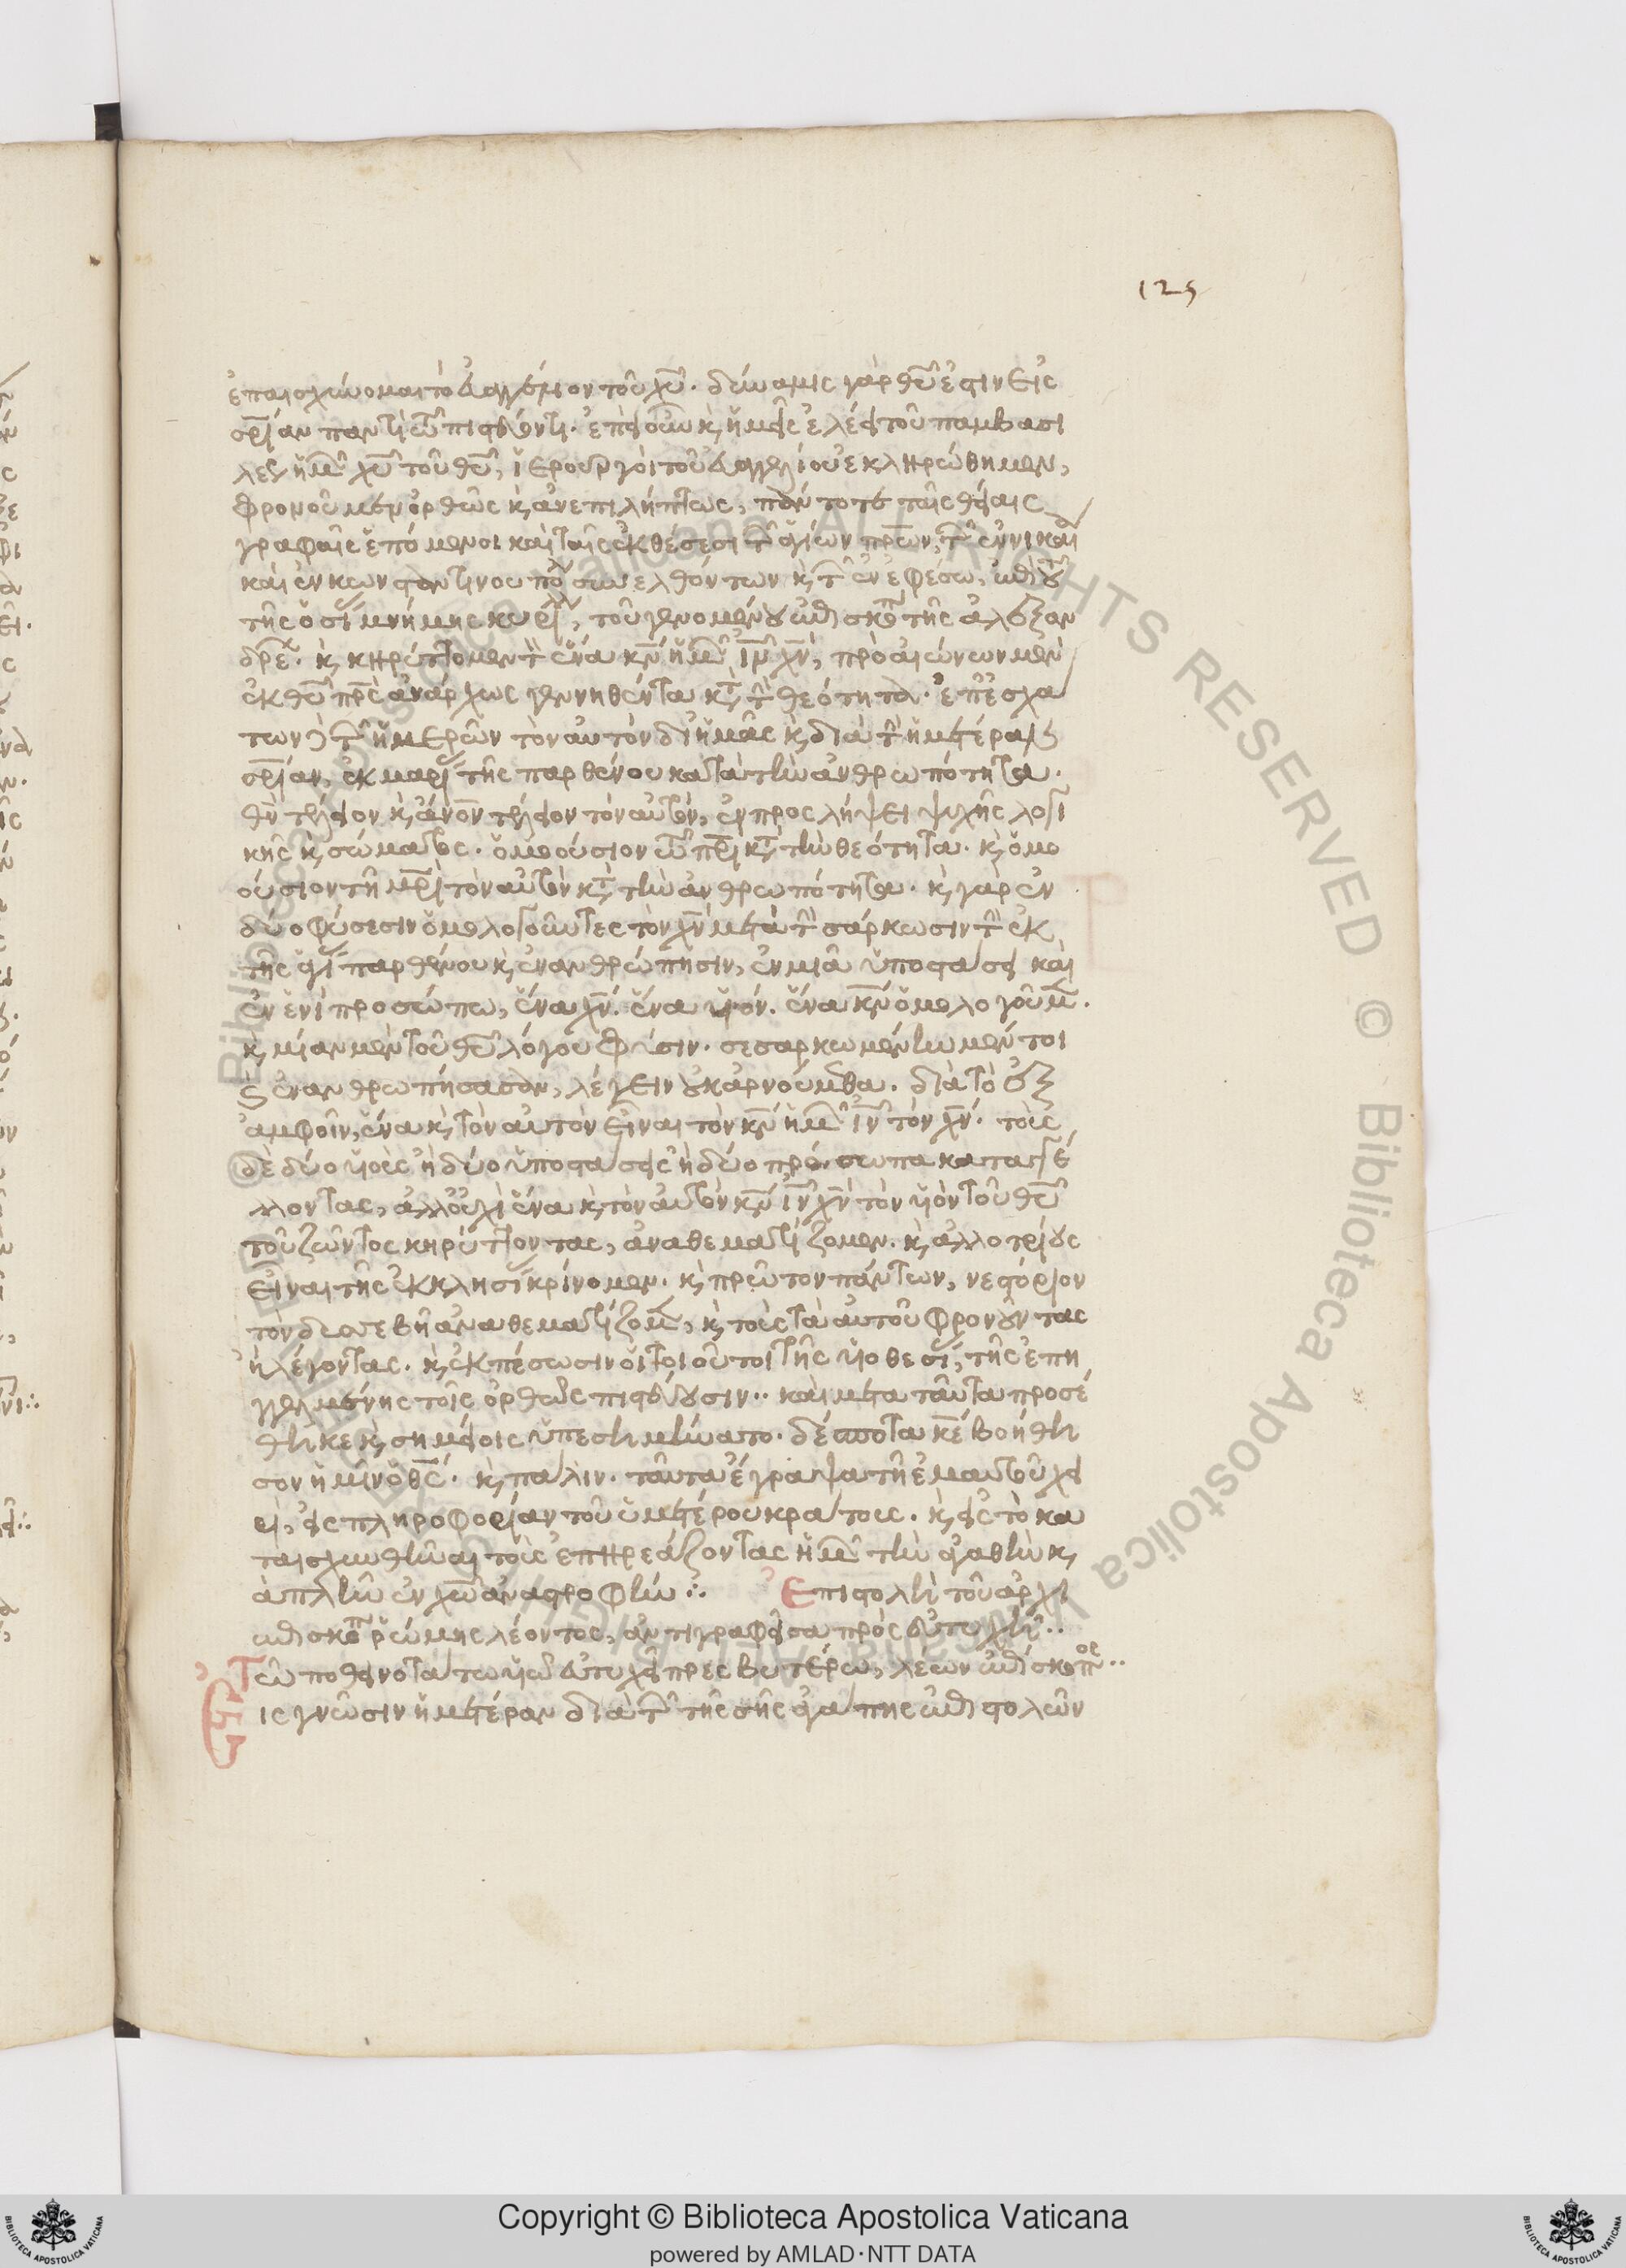 125
ἐπαισχύνομαι τὸ εὐαγγέλιον τοῦ χῦ. δύναμις γὰρ θῦ ἐστιν εἰς
σρίαν παντὶ τῶ πιστεύοντι. ἐπεὶ οὖν κ ἡμεῖς ἐλέει τοῦ παμβασι
λέως ἡμῶν χῦ τοῦ θῦ, ἱερουργοὶ τοῦ εὐαγγελίου ἐκληρώθημεν,
φρονοῦμεν ὀρθῶς κ ἀνεπιλήπτως, πάντοτε ταῖς θείαις
γραφαῖς ἑπόμενοι καὶ ταῖς ἐκθέσεσι τῶν ἁγίων πρων, τῶν ἐν νικαία
καὶ ἐν κωνσταντινουπόλ συνελθόντων κ τῶν ἐν ἐφέσω, ἐπὶ τοῦ
τῆς ὁσί μνήμης κυρίλλ, τοῦ γενομένου ἐπισκόπ τῆς ἀλεξαν
δρέων. κ κηρύττομεν τὸν ἕνα κν ἡμῶν ιν χν, πρὸ αἰώνων μὲν
ἐκ θῦ πρς ἀνάρχως γεννηθέντα κτ τὴν θεότητα. ἐπ ἐσχά
των δὲ τῶν ἡμερῶν τὸν αὐτὸν δι ἡμᾶς κ διὰ τὴν ἡμετέραν
σρίαν, ἐκ μαρί τῆς παρθένου κατὰ τὴν ἀνθρωπότητα.
θν τέλειον κ ἄνον τέλειον τὸν αὐτόν, ἐν προσλήψει ψυχῆς λογι
κῆς κ σώματος. ὁμοούσιον τῶ πρι κτ τὴν θεότητα. κ ὁμο
ούσιον τῆ μρι τὸν αὐτὸν κτ τὴν ἀνθρωπότητα. κ γὰρ ἐν
δύο φύσεσιν ὁμολογοῦντες τὸν χν μετὰ τὴν σάρκωσιν τὴν ἐκ
τῆς ἁγί παρθένου κ ἐνανθρώπησιν, ἐν μιᾶ ὑποστάσει καὶ
ἐν ἑνὶ προσώπω, ἕνα χν. ἕνα υἱόν. ἕνα κν ὁμολογοῦμ.
κ μίαν μὲν τοῦ θῦ λόγου φύσιν. σεσαρκωμένην μέντοι
κ ἐνανθρωπήσασαν, λέγειν οὐκ ἀρνούμεθα. διὰ τὸ ἐξ
ἀμφοῖν, ἕνα κ τὸν αὐτὸν εἶναι τὸν κν ἡμῶν ιν τὸν χν. τοὺς
δὲ δύο υἱοὺς ἢ δύο ὑποστάσεις ἢ δύο πρόσωπα καταγγέ
λλοντας, ἀλλ οὐχὶ ἕνα κ τὸν αὐτὸν κν ιν χν τὸν υἱὸν τοῦ θῦ
τοῦ ζῶντος κηρύττοντας, ἀναθεματίζομεν. κ ἀλλοτρίους
εἶναι τῆς ἐκκλησί κρίνομεν. κ πρῶτον πάντων, νεστόριον
τὸν δυσσεβῆ ἀναθεματίζομ, κ τοὺς τὰ αὐτοῦ φρονοῦντας
ἢ λέγοντας. κ ἐκπέσωσιν οἱ τοιοῦτοι τῆς υἱοθεσί, τῆς ἐπη
γγελμένης τοῖς ὀρθῶς πιστεύουσιν.. καὶ μετὰ ταῦτα προσέ
θηκε κ σημείοις ὑπεσημήνατο. δέσποτα κε βοήθη
σον ἡμῖν ὁ θς. κ πάλιν. ταῦτα ἔγραψα τῆ ἐμαυτοῦ χει
ρὶ, εἰς πληροφορίαν τοῦ ὑμετέρου κράτους. κ εἰς τὸ κα
ταισχυνθῆναι τοὺς ἐπηρεάζοντας ἡμῶν τὴν ἀγαθὴν κ
ἁπλῆν ἐν χω ἀναστροφήν ∴ Ἐπιστολὴ τοῦ ἀρχι
επισκόπ ῥώμης λέοντος, ἀντιγραφεῖσα πρὸς εὐτυχῆ..
Τῶ ποθεινοτάτω υἱῶ εὐτυχεῖ πρεσβυτέρω, λέων ἐπίσκοπος..
Εἰς γνῶσιν ἡμετέραν διὰ τῶν τῆς σῆς ἀγάπης ἐπιστολῶν
© Biblioteca Apostolica Vaticana
ALL RIGHTS RESERVED
Copyright © Biblioteca Apostolica Vaticana
powered by AMLAD·NTT DATA